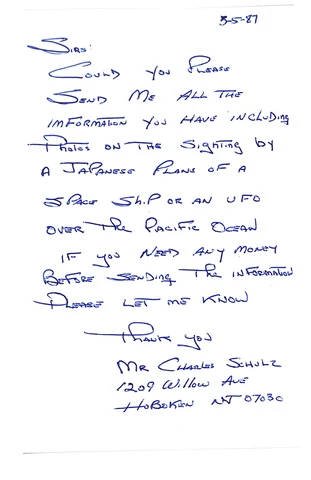 3-5-87
SIRS:
COULD YOU PLEASE
SEND ME ALL THE
IMFORMATION YOU HAVE INCLUDING
PHOTOS ON THE SIGHTING BY
A JAPANESE PLANE OF A
SPACE SHIP OR AN UFO
OVER THE PACIFIC OCEAN
IF YOU NEED ANY MONEY
BEFORE SENDING THE INFORMATION
PLEASE LET ME KNOW
THANK YOU
MR CHARLES SCHULZ
1209 WILLOW AVE
HOBOKEN NJ 07030